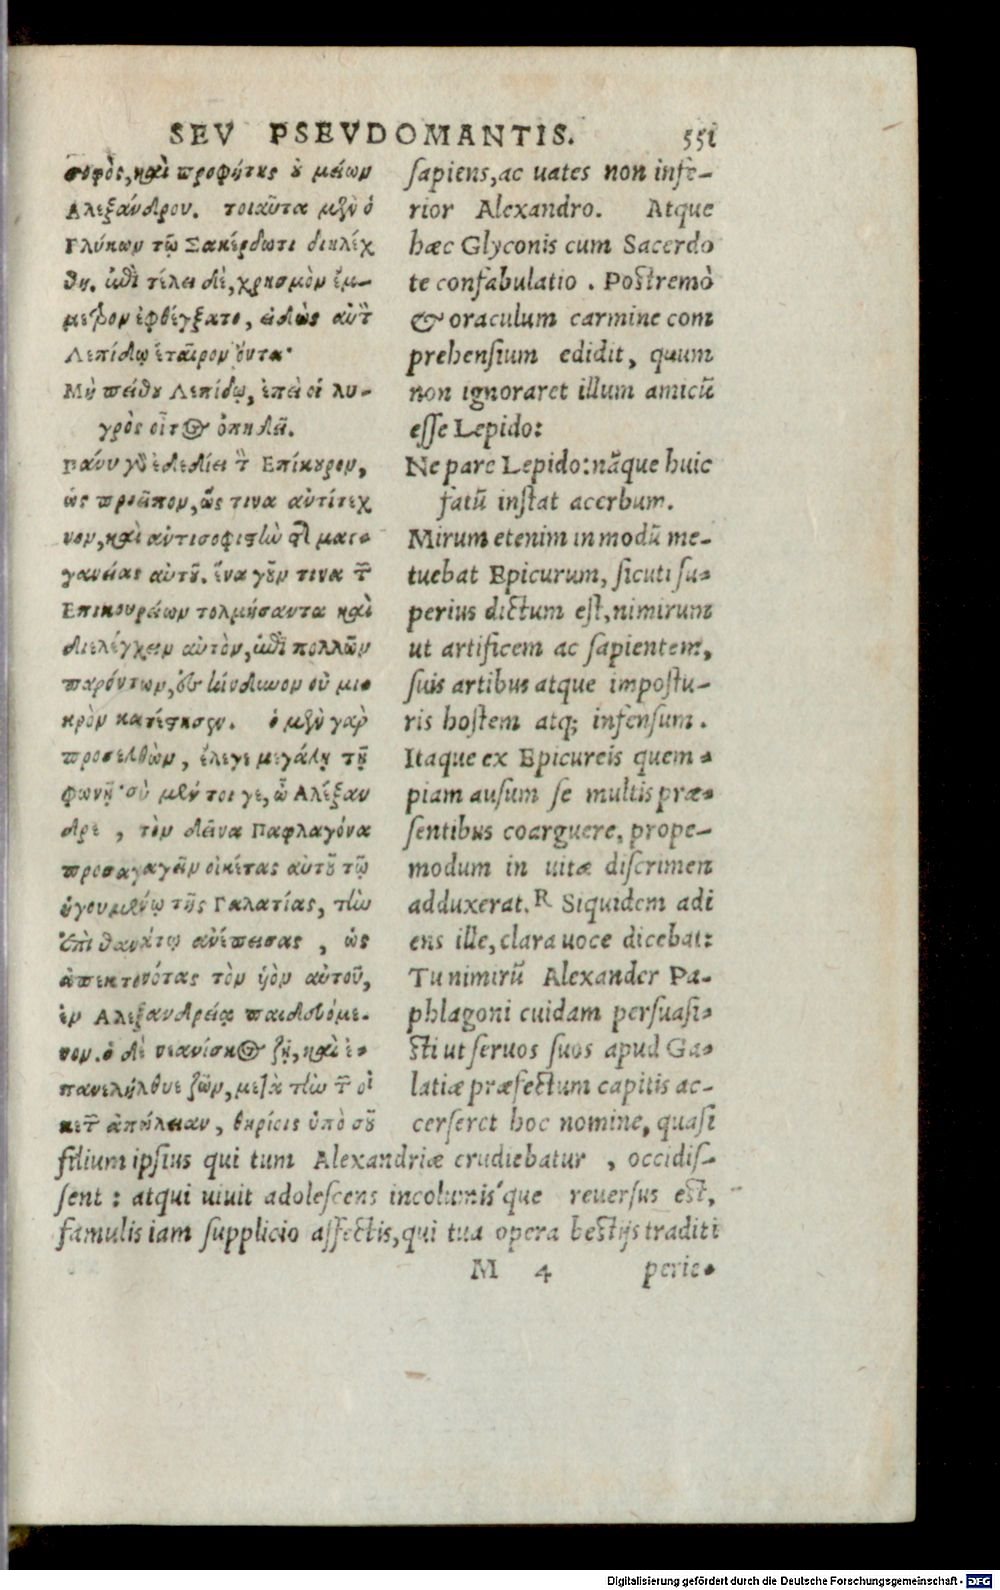 SEV PSEVDOMANTIS. 551
σοφὸς, καὶ προφήτης ὁ μείων
Ἀλεξάνδρου. τοιαῦτα μὲν ὁ
Γλύκων τῷ Σακέρδωτι διελέχ
θη. ἐπὶ τέλει δὲ, χρησμὸν ἔμ-
μετρον ἐφθέγξατο, εἰδὼς αὐτ
Λεπίδῳ ἑταῖρον ὄντα·
Μὴ πείθου Λεπίδῳ, ἐπεὶ οἱ λυ-
γρὸς οἶτος ὀπηδεῖ.
Πάνυ γὰρ ἐδεδίει τ Ἐπίκουρον,
ὡς προεῖπον, ὥς τινα ἀντίτεχ
νον, καὶ ἀντισοφιστὼ τῆ μαγ-
γανείας αὐτοῦ. ἕνα γοῦν τινα τ
Ἐπικουρείων τολμήσαντα καὶ
διελέγχειν αὐτὸν, ἐπὶ πολλῶν
παρόντων, εἰς κίνδυνον οὐ μι-
κρὸν κατέστησεν. ὁ μὲν γὰρ
προσελθὼν, ἔλεγε μεγάλῃ τῇ
φωνῇ· σὺ μέν τοι γε, ὦ Ἀλέξαν
δρε, τὸν δεῖνα Παφλαγόνα
προσαγαγεῖν οἰκέτας αὑτοῦ τῷ
ἡγουμένῳ τῆς Γαλατίας, τὴν
ἐπὶ θανάτῳ ἀνέπεισας, ὡς
ἀπεκτονότας τὸν υἱὸν αὐτοῦ,
ἐν Ἀλεξανδρείᾳ παιδευόμε-
νον. ὁ δὲ νεανίσκος ζῇ, καὶ ἐ-
πανελήλυθε ζῶν, μετὰ τὴν τ οἰ
κετ ἀπώλειαν, θηρίοις ὑπὸ σοῦ
sapiens, ac uates non infe-
rior Alexandro. Atque
hæc Glyconis cum Sacerdo
te confabulatio. Postremò
& oraculum carmine com
prehensium edidit, quum
non ignoraret illum amicũ
esse Lepido:
Ne pare Lepido: nãque huic
fatũ instat acerbum.
Mirum etenim in modũ me-
tuebat Epicurum, sicuti su-
perius dictum est, nimirum
ut artificem ac sapientem,
suis artibus atque impostu-
ris hostem atq; infensum.
Itaque ex Epicureis quem-
piam ausum se multis præ-
sentibus coarguere, prope-
modum in uitæ discrimen
adduxerat. R Siquidem adi
ens ille, clara uoce dicebat:
Tu nimirũ Alexander Pa-
phlagoni cuidam persuasi-
sti ut seruos suos apud Ga-
latiæ præfectum capitis ac-
cerseret hoc nomine, quasi
filium ipsius qui tum Alexandriæ erudiebatur, occidis-
sent: atqui uiuit adolescens incolumis´que reuersus est,
famulis iam supplicio affectis, qui tua opera bestijs traditi
M 4 perie-
Digitalisierung gefördert durch die Deutsche Forschungsgemeinschaft - DFG